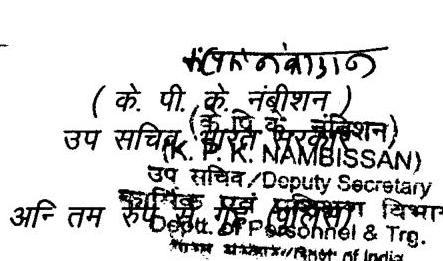 ( के. पी. के. नंबीशन )
(के. पि. के. नंबिशन)
उप सचिव, भारत सरकार
(K. P. K. NAMBISSAN)
उप सचिव/Deputy Secretary
कार्मिक एवं प्रशिक्षण विभाग
अनि तम रुप से गई (पुलिस)
Deptt. of Personnel & Trg.
Govt. of India